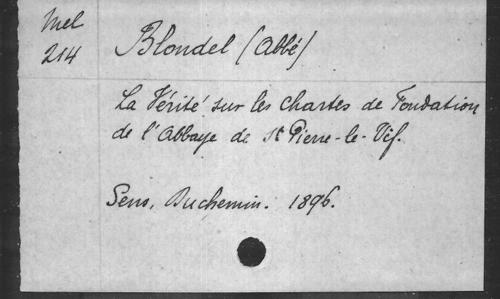 Mel
214
Blondel (Abbé)
La Vérité sur les chartes de Fondation
de l'Abbaye de St Pierre-le-Vif.
Sens, Duchemin. 1896.